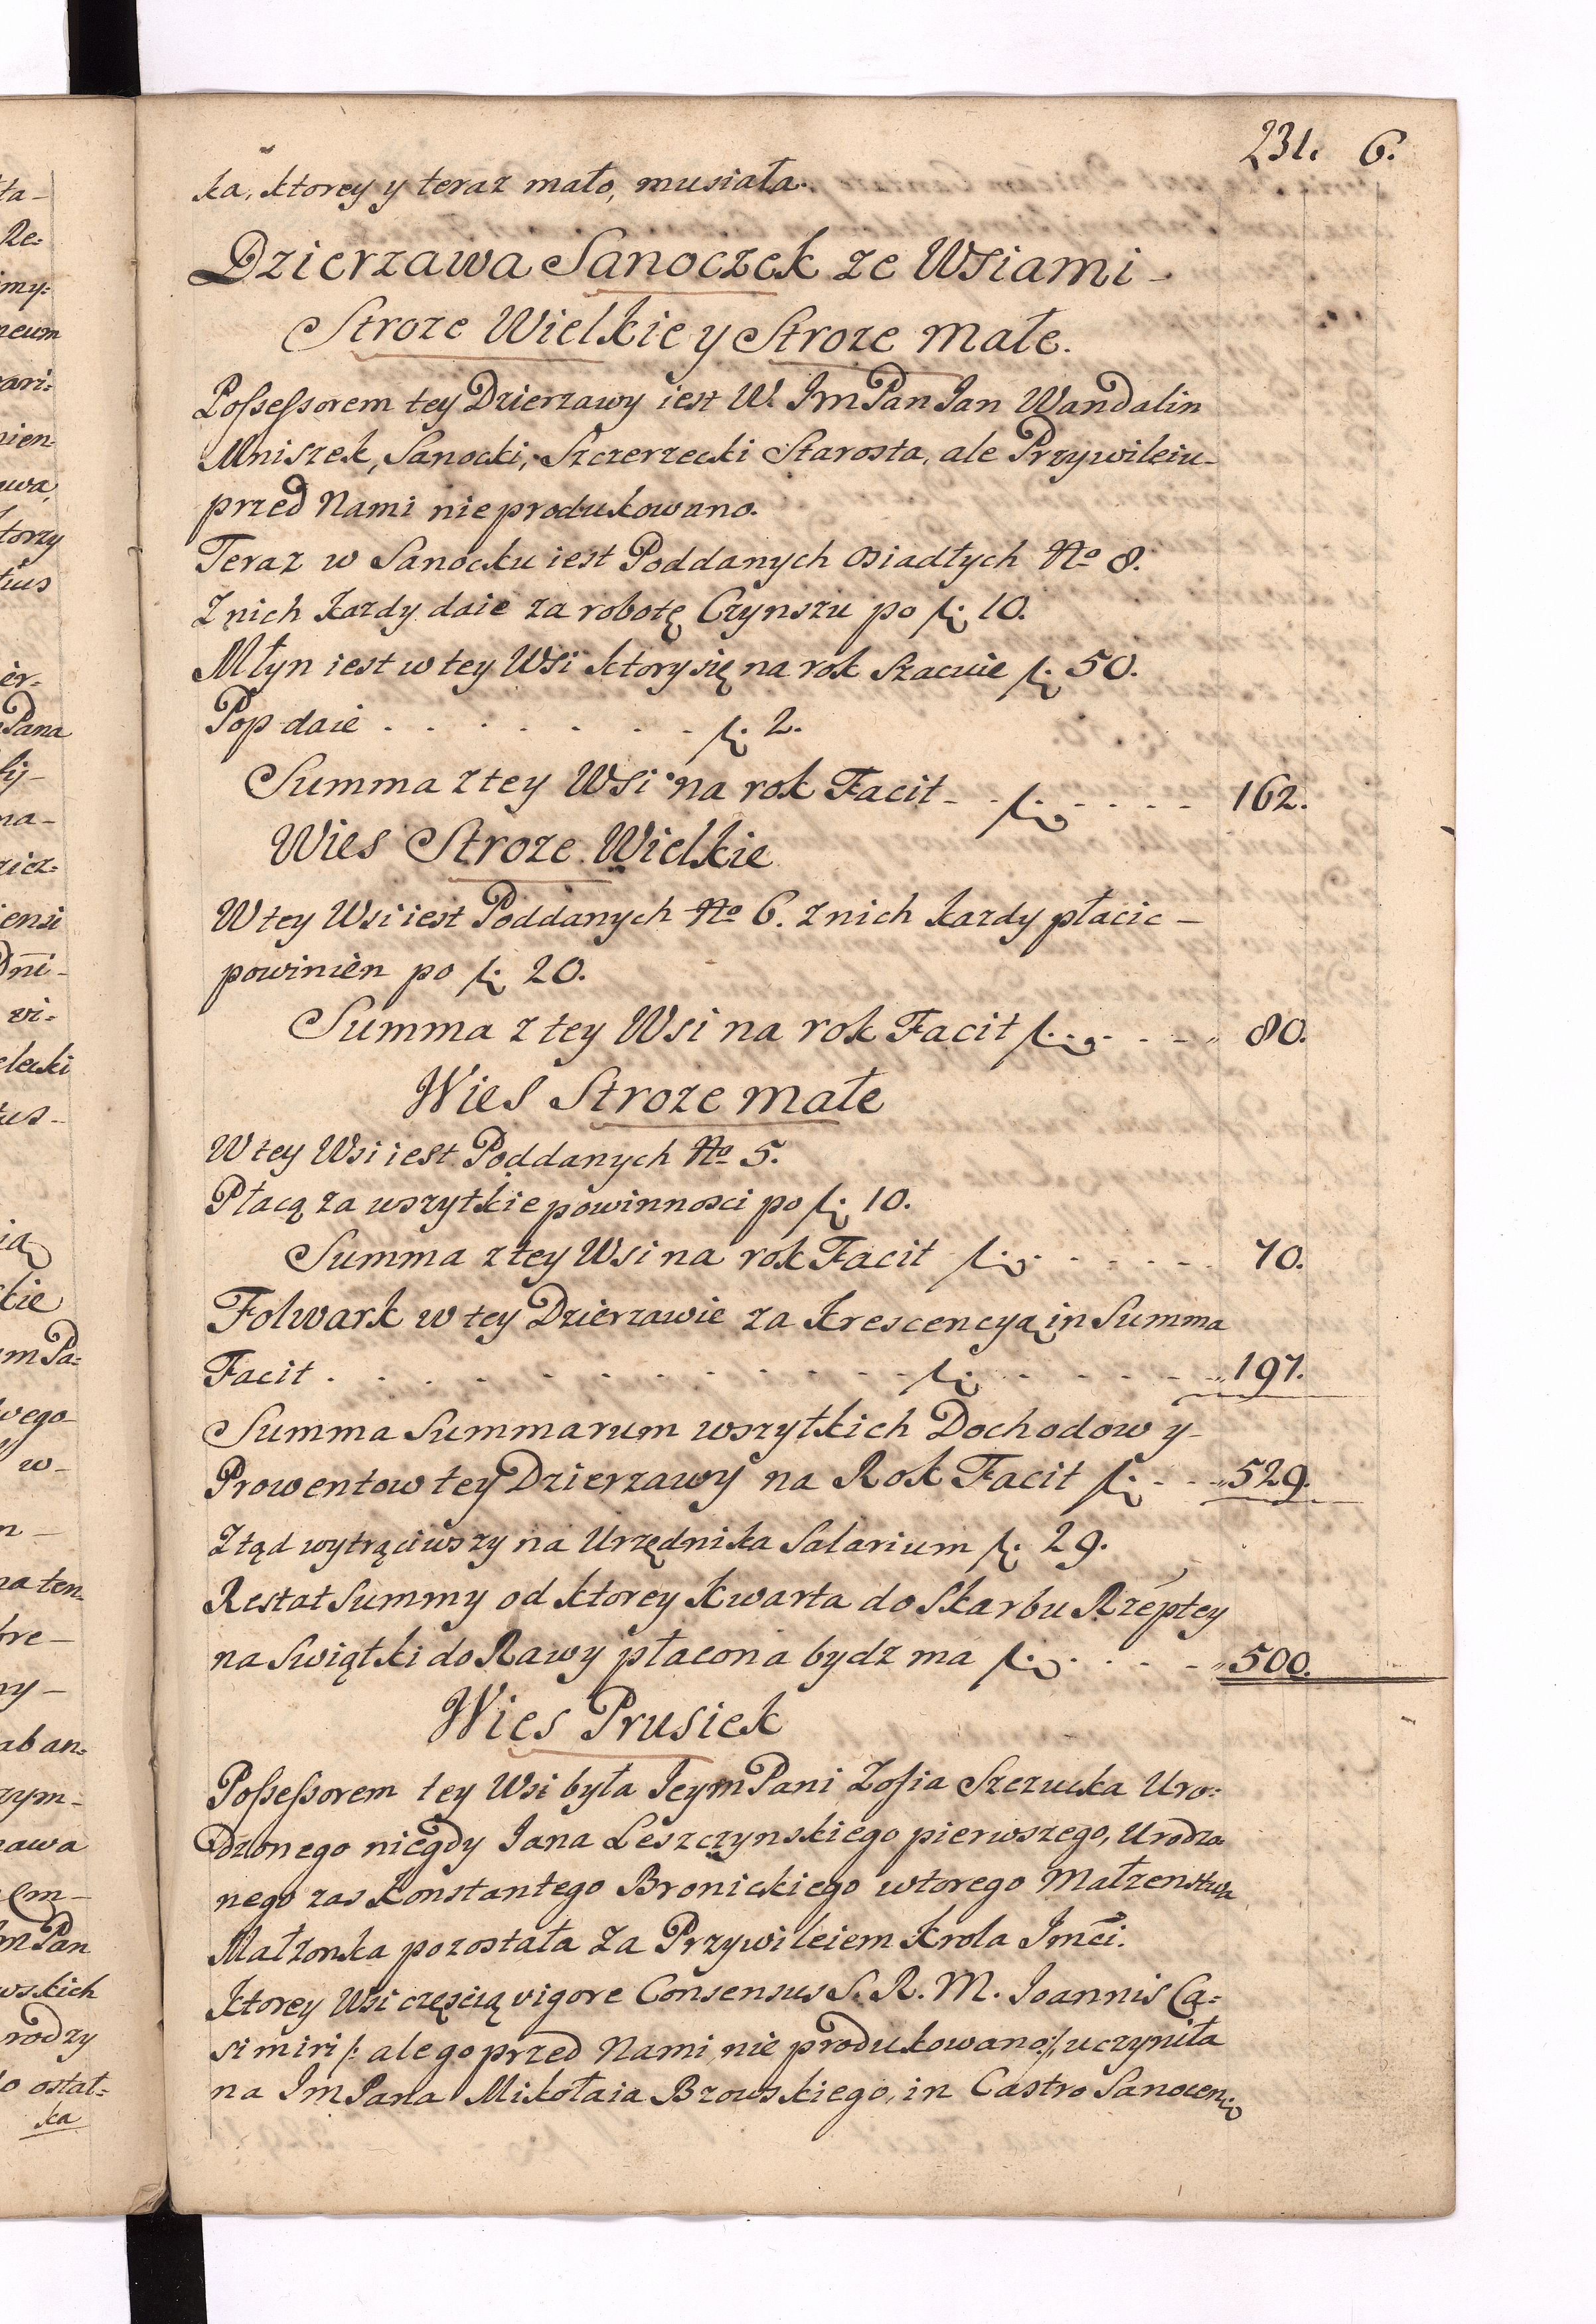 231. 6.
ka, ktorey y teraz mało, musiała.
Dzierzawa Sanoczek ze Wsiami -
Stroze Wielkie y Stroze małe.
Poſseſsorem tey Dzierzawy iest W. Im Pan Ian Wandalin
Mniszek, Sanocki, Szczerzecki Starosta, ale Przywileiu-
przed Nami nie produkowano.
Teraz w Sanocku iest Poddanych osiadłych No 8.
Z nich kazdy daie za robotę Czynszu po f. 10.
Młyn iest w tey Wsi ktory się na rok szacuie f. 50.
Pop daie . . . . . . . f. 2.
Summa z tey Wsi na rok Facit - - f. - - - - 162.
Wies Stroze Wielkie
W tey Wsi iest Poddanych No 6. z nich kazdy płacic -
powinien po f. 20.
Summa z tey Wsi na rok Facit f. - - - 80.
Wies Stroze małe
W tey Wsi iest Poddanych No 5.
Płacą za wszytkie powinnosci po f. 10.
Summa z tey Wsi na rok Facit f. - - - - - 70.
Folwark w tey Dzierzawie za Krescencyą in Summa
Facit . . . . . . . . . f. - - - - 197.
Summa Summarum wszytkich Dochodow y-
Prowentow tey Dzierzawy na Rok Facit f. - - 529.
Ztąd wytrąciwszy na Urzędnika Salarium f. 29.
Restat Summy od ktorey Kwarta do Skarbu Rzeptey
na Swiątki do Rawy płacona bydz ma f. - - - 500.
Wies Prusiek
Poſseſsorem tey Wsi była Ieym Pani Zofia Szczucka Uro:
dzonego niegdy Iana Leszczynskiego pierwszego, Urodzo
nego zas Konstantego Bronickiego wtorego Małzenstwa
Małzonka pozostała za Przywileiem Krola Imci.
Ktorey Wsi częscią vigore Consensus S. R. M. Ioannis Ca:
simiri /: ale go przed Nami nie produkowano :/ uczyniła
na Im Pana Mikołaia Bzowskiego, in Castro Sanocen: